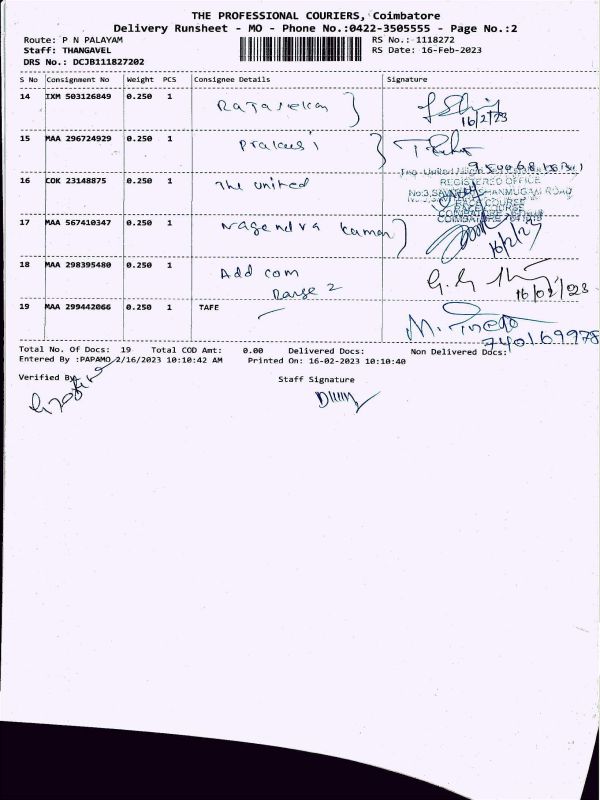 THE PROFESSIONAL COURIERS, Coimbatore
Delivery Runsheet - MO - Phone No.:0422-3505555 - Page No.:2
Route: P N PALAYAM RS No.: 1118272
Staff: THANGAVEL RS Date: 16-Feb-2023
DRS No.: DCJB111827202
S No Consignment No Weight PCS Consignee Details Signature
14 IXM 503126849 0.250 1 Rajasekar
16/2/23
15 MAA 296724929 0.250 1
16 COK 23148875 0.250 1 The united
REGISTERED OFFICE
SHANMUGAM ROAD
RACE COURSE
COIMBATORE
17 MAA 567410347 0.250 1 Nagendra kumar
16/2/23
18 MAA 298395480 0.250 1 Add com
Range 2
16/02/23
19 MAA 299442066 0.250 1 TAFE
Total No. Of Docs: 19 Total COD Amt: 0.00 Delivered Docs: Non Delivered Docs:
Entered By :PAPAMO 2/16/2023 10:10:42 AM Printed On: 16-02-2023 10:10:40
Verified By Staff Signature